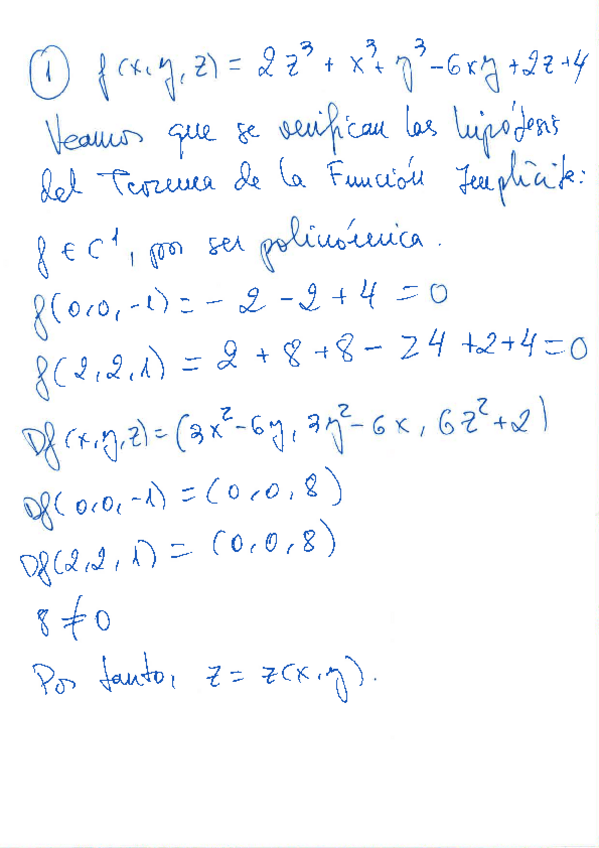 ① f(x,y,z) = 2z³ + x³ + y³ - 6xy + 2z + 4
Veamos que se verifican las hipótesis
del Teorema de la Función Implícita:
f ∈ C¹, por ser polinómica.
f(0,0,-1) = - 2 - 2 + 4 = 0
f(2,2,1) = 2 + 8 + 8 - 24 + 2 + 4 = 0
Df(x,y,z) = (3x² - 6y, 3y² - 6x, 6z² + 2)
Df(0,0,-1) = (0,0,8)
Df(2,2,1) = (0,0,8)
8 ≠ 0
Por tanto, z = z(x,y).